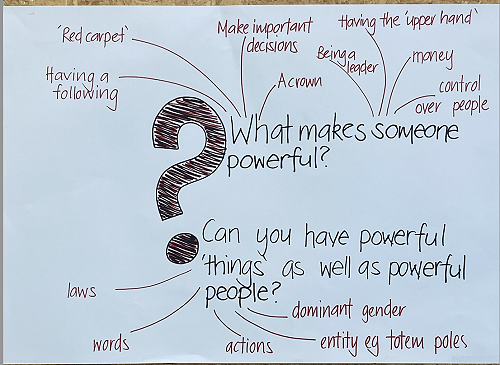 'Red carpet'
Make important
decisions
Having the 'upper hand'
Being a
leader
money
Having a
following
A crown
control
over people
What makes someone
powerful?
Can you have powerful
'things' as well as powerful
people?
laws
dominant gender
words
actions
entity eg totem poles